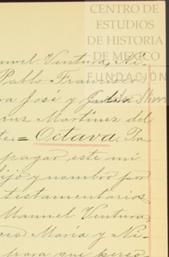 CENTRO DE
ESTUDIOS
DE HISTORIA
DE MÉXICO
FUNDACIÓN
nuel Ventura, Ni-
Pablo Franci
ra José y
nez Martinez del
te.= Octava. Pa
pagar este mi
hijo y nombro por
testamentarios
Manuel Ventura
cia Maria y Ni-
para que